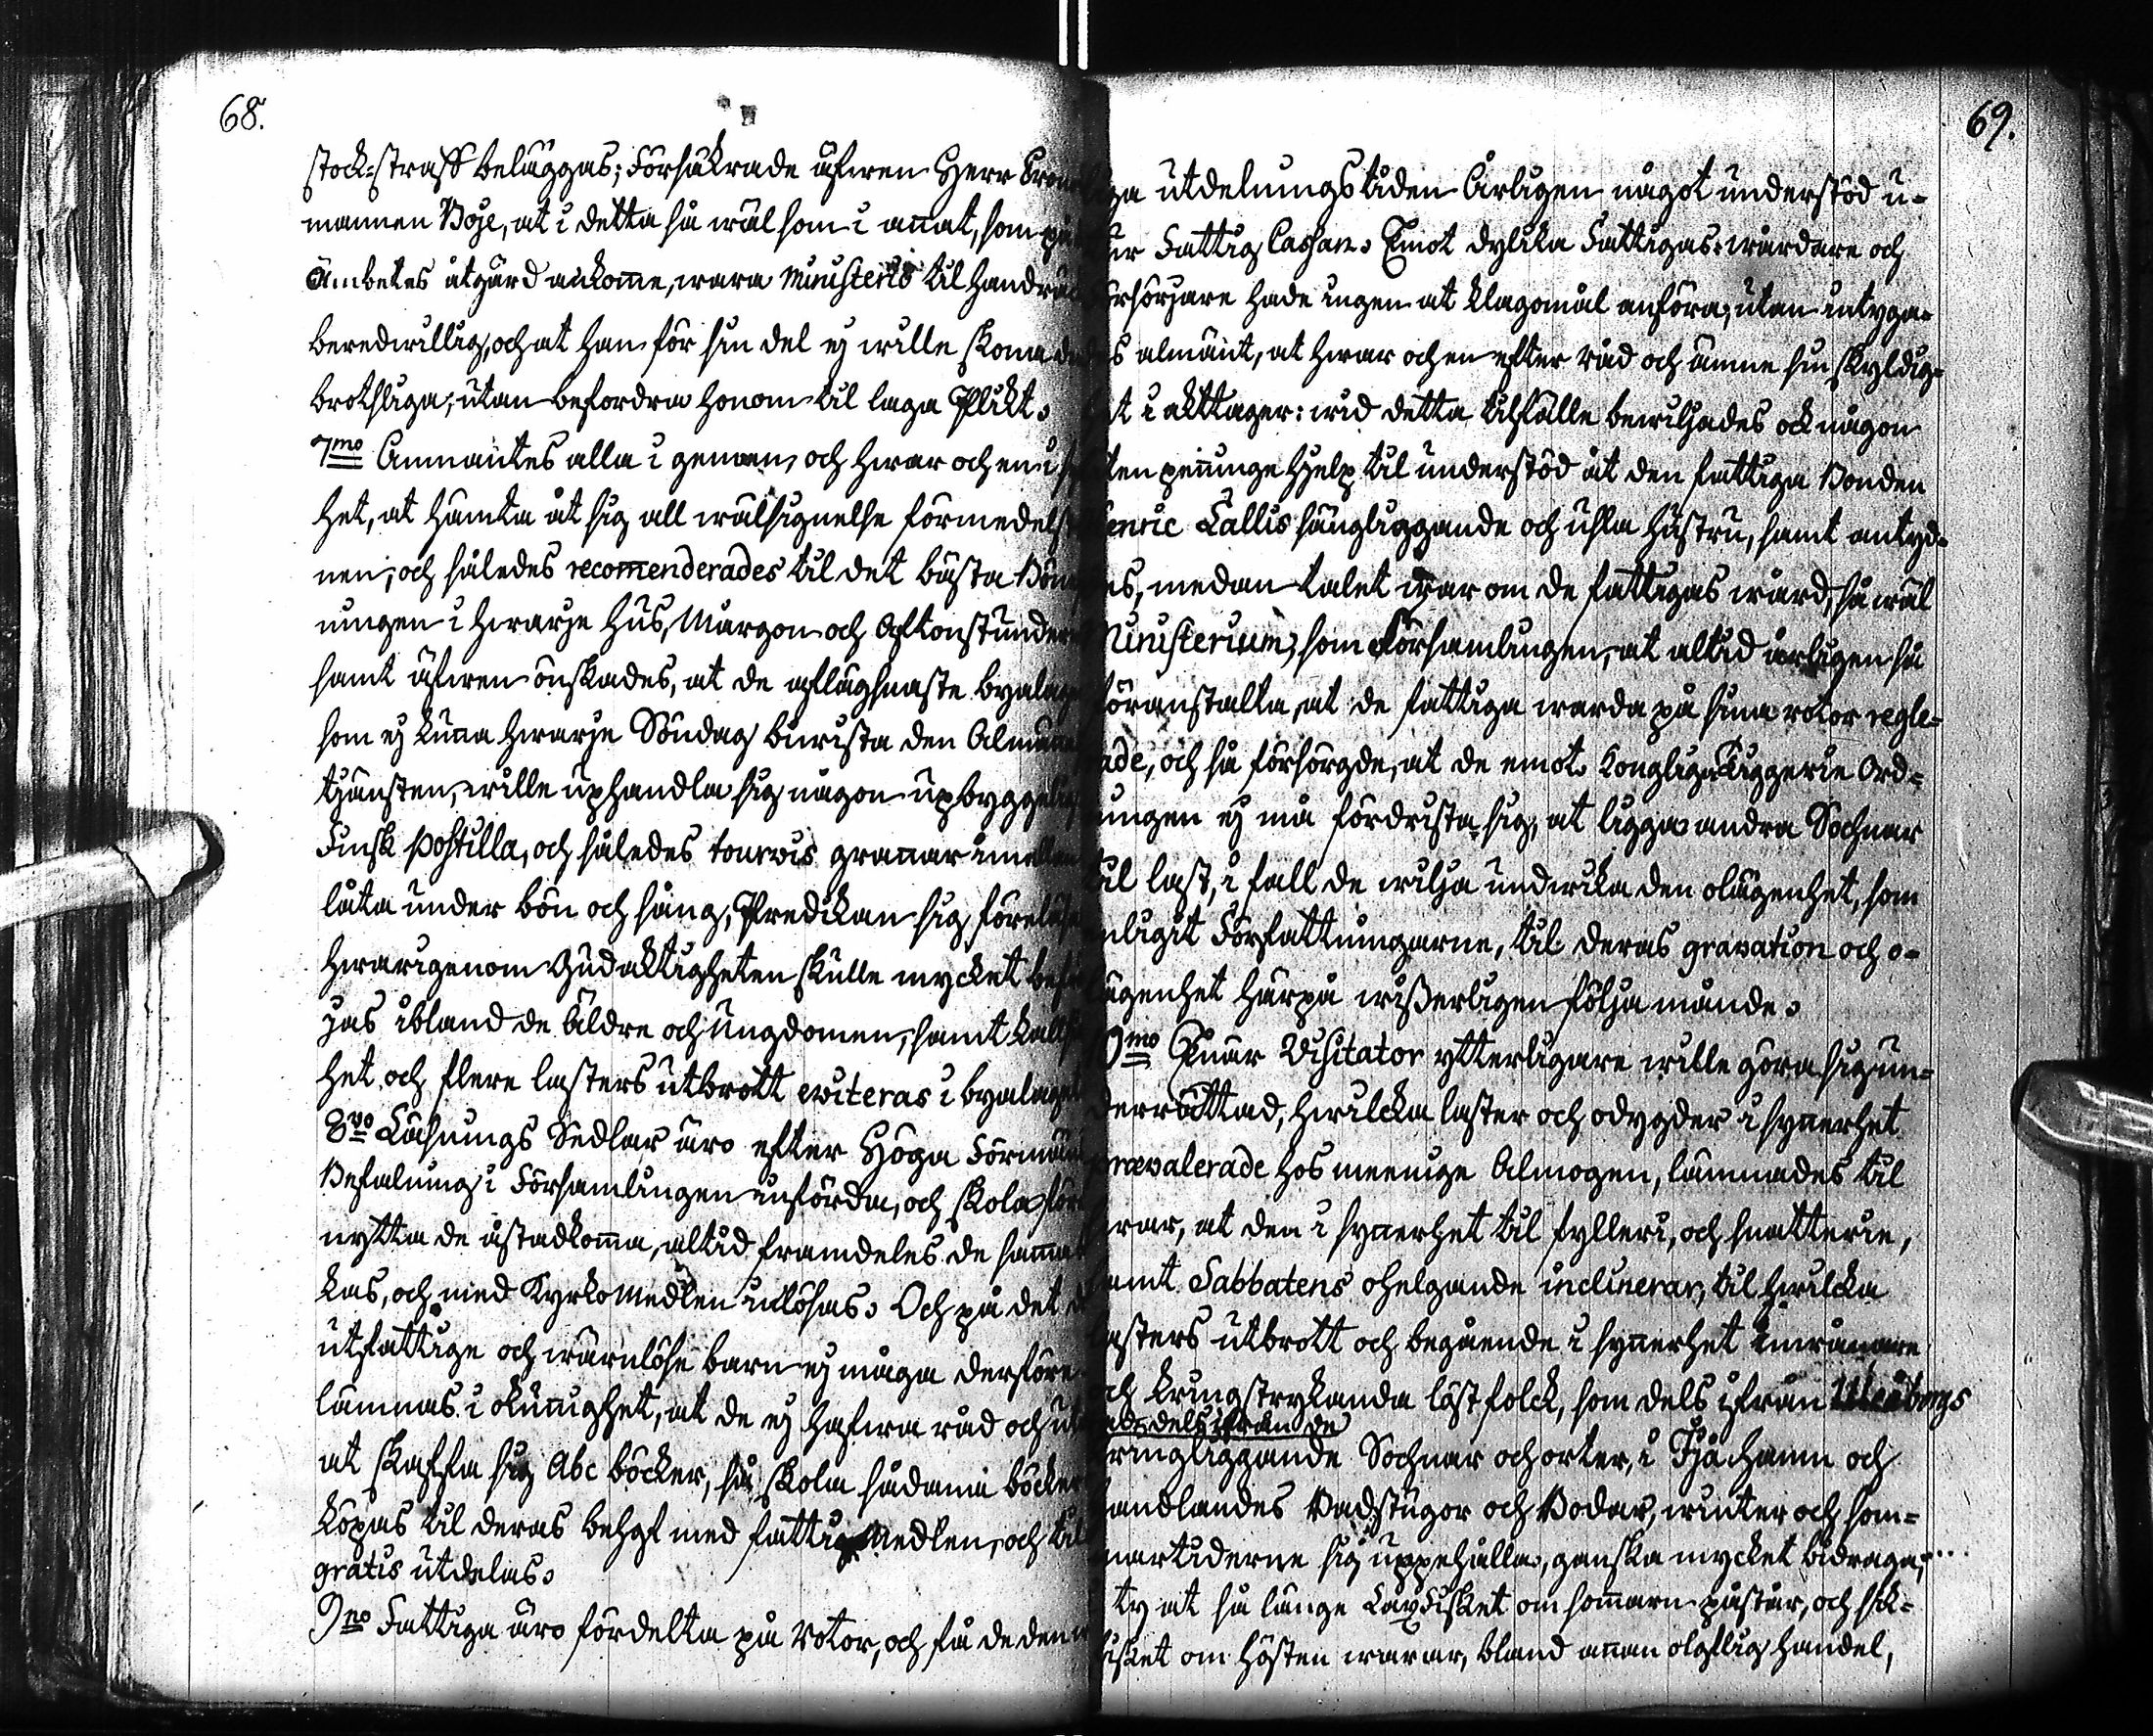 68.
stock-straff beläggas; Försäkrade äfwen Herr Crono
mannen Böje, at i detta så wäl som i annat, som på
Ämbetes åtgärd ankomme, wara Ministerio til handräck
beredwillig, och at han för sin del ej wille skona de
brotsliga, utan befordra honom til laga Plikt.
7mo Anmantes alla i gemen, och hwar och en i
het, at hämta åt sig all wälsignelse förmedelst
nen; och således recommenderades til det bästa Bön
ningen i hwarje hus, Morgon och Aftonstunder
samt äfwen önskades, at de aflägsnaste byalag
som ej kunna hwarje Söndag biwista den Almänna
tjänsten, wille uphandla sig någon upbyggelig
Finsk Postilla, och således tourwis grannar imellan
låta under bön och sång, Predikan sig föreläsa
hwarigenom Gudaktigheten skulle mycket
jas ibland de äldre och ungdomen, samt
het och flere lasters utbrott eviteras i byalagen
8vo Läsnings Sedlar äro efter Höga Förmäns
Befalning i Församlingen införda, och skola för
nytta de åstadkomma, altid framdeles de samma
kas, och med Kyrko medlen inlösas. Och på det
utfattige och wärnlöse barn ej måga derföre
lämnas i okunnighet, at de ej hafwa råd och
at skaffa sig Abc böcker, så skola sådana böcker
köpas til deras behof med fattig Medlen, och til
gratis utdelas.
9no Fattiga äro fördelta på Rotor, och få de den
69.
liga utdelningstiden Årligen något understöd u-
tur Fattig Cassan. Emot dylika Fattigas wårdare och
försörjare hade ingen at klagomål anföra, utan intyga-
des almänt, at hwar och en efter råd och ämne sin skyldig-
het i akttager: wid detta tilfälle bewiljades ock någon
liten penninge hjelp til understöd åt den fattiga Bonden
Henric Lallis sängliggande och usla hustru, samt antyd-
des, medan talet war om de fattigas wård, så wäl
Ministerium, som Församlingen, at altid årligen så
föranstalta, at de fattiga warda på sina rotor regle-
rade, och så försörgde, at de emot Kongliga Tiggerie Ord-
ningen ej må fördrista sig, at ligga andra Sochnar
til last, i fall de wilja undwika den olägenhet, som
enligit Författningarne, til deras gravation och o-
lägenhet härpå wisserligen följa månde.
mo Enär Visitator ytterligare wille göra sig un-
derrättad, hwilcka laster och odygder i synnerhet
prævalerade hos meenige Almogen, lämnades til
swar, at den i synnerhet til fylleri, och snatterie,
samt Sabbatens ohelgande inclinerar, til hwilcka
lasters utbrott och begående i synnerhet inwånare
och kringstrykanda löst folck, som dels ifrån Uleåborgs
stad, dels ifrån de
kringliggande Sochnar och orter, i Ijå hamn och
handlandes Badstugor och Bodar, winter och som-
martiderne sig uppehålla, ganska mycket bidraga;
ty at så länge Laxfisket om sommarn påstår, och sik-
fisket om hösten warar, bland annan olaflig handel,